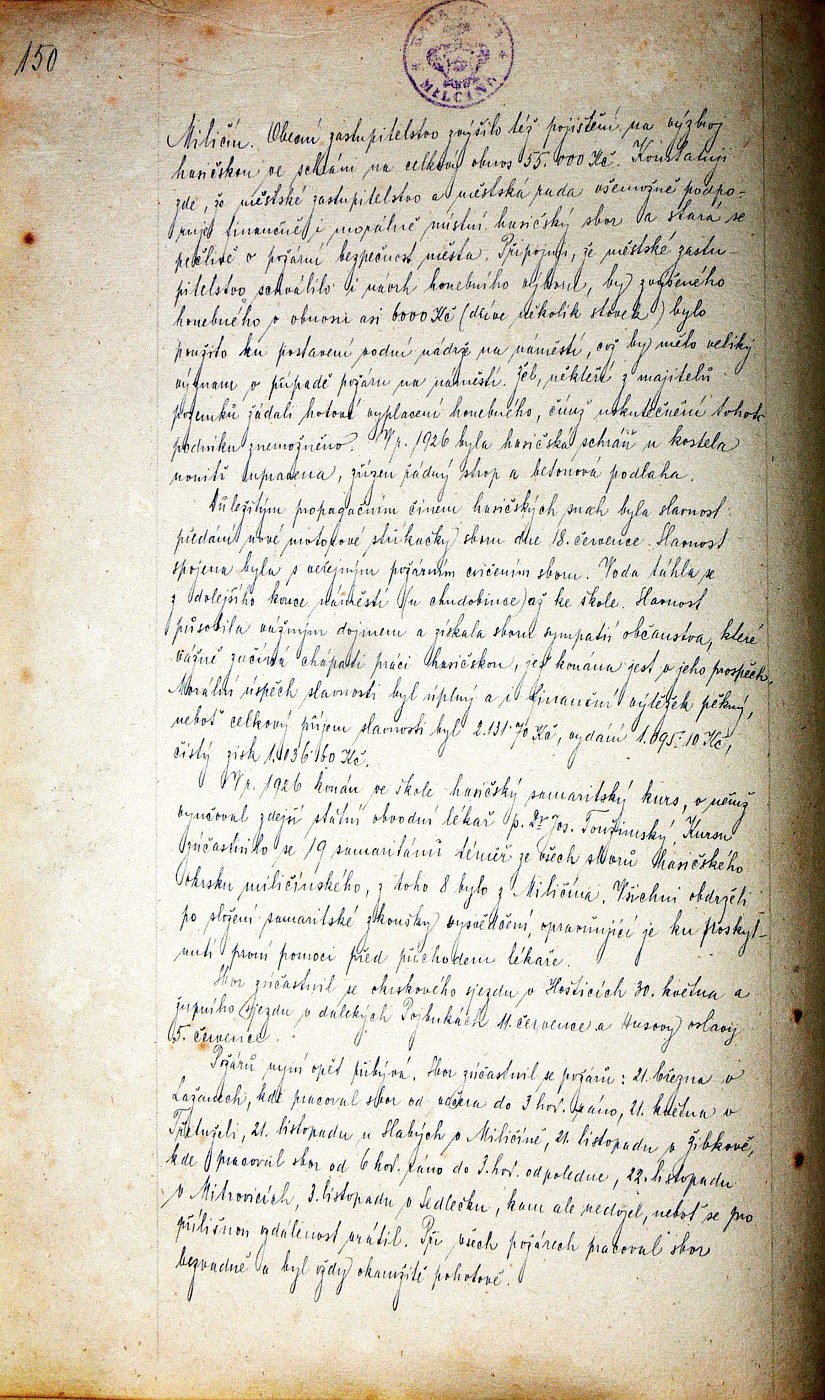 150
MILČÍNĚ
Miličín. Obecní zastupitelstvo zvýšilo též pojištění na výzbroj
hasičskou ve schráni na celkový obnos 55.000 Kč. Konstatuji
zde, že městské zastupitelstvo a městská rada všemožně podpo-
ruje finančně i morálně místní hasičský sbor a stará se
pečlivě o požární bezpečnost města. Připojuji, že městské zastu-
pitelstvo schválilo i návrh honebního výboru, by zvýšeného
honebného v obnosu asi 6000 Kč (dříve několik stovek) bylo
použito ku postavení vodní nádrže na náměstí, což by mělo veliký
význam v případě požáru na náměstí. Žel, někteří z majitelů
pozemků žádali hotové vyplacení honebného, čímž uskutečnění tohoto
podniku znemožněno. V r. 1926 byla hasičská schráň u kostela
uvnitř upravena, zřízen řádný strop a betonová podlaha.
Důležitým propagačním činem hasičských snah byla slavnost
předání nové motorové stříkačky sboru dne 18. července. Slavnost
spojena byla s veřejným požárním cvičením sboru. Voda táhla se
z dolejšího konce náměstí (u chudobince) až ke škole. Slavnost
působila vážným dojmem a získala sboru sympatií občanstva, které
vážně začíná chápati práci hasičskou, jež konána jest v jeho prospěch.
Morální úspěch slavnosti byl úplný a i finanční výtěžek pěkný,
neboť celkový příjem slavnosti byl 2.131·70 Kč, vydání 1.095·10 Kč,
čistý zisk 1.036·60 Kč.
V r. 1926 konán ve škole hasičský samaritský kurs, v němž
vyučoval zdejší státní obvodní lékař p. Dr Jos. Toužimský. Kursu
zúčastnilo se 19 samaritánů téměř ze všech sborů hasičského
okrsku miličínského, z toho 8 bylo z Miličína. Všichni obdrželi
po složení samaritské zkoušky vysvědčení, opravňující je ku poskyt-
nutí první pomoci před příchodem lékaře.
Sbor zúčastnil se okrskového sjezdu v Hošticích 30. května a
župního sjezdu v dalekých Pojbukách 11. července a Husovy oslavy
5. července.
Požárů nyní opět přibývá. Sbor zúčastnil se požárů: 21. března v
Lažanech, kde pracoval sbor od večera do 3 hod. ráno, 21. května v
Třetuželi, 21. listopadu u Slabých v Miličíně, 21. listopadu v Žibkově,
kde pracoval sbor od 6 hod. ráno do 3. hod. odpoledne, 22. listopadu
v Mitrovicích, 3. listopadu v Sedlečku, kam ale nedojel, neboť se pro
přílišnou vzdálenost vrátil. Při všech požárech pracoval sbor
bezvadně a byl vždy okamžitě pohotově.